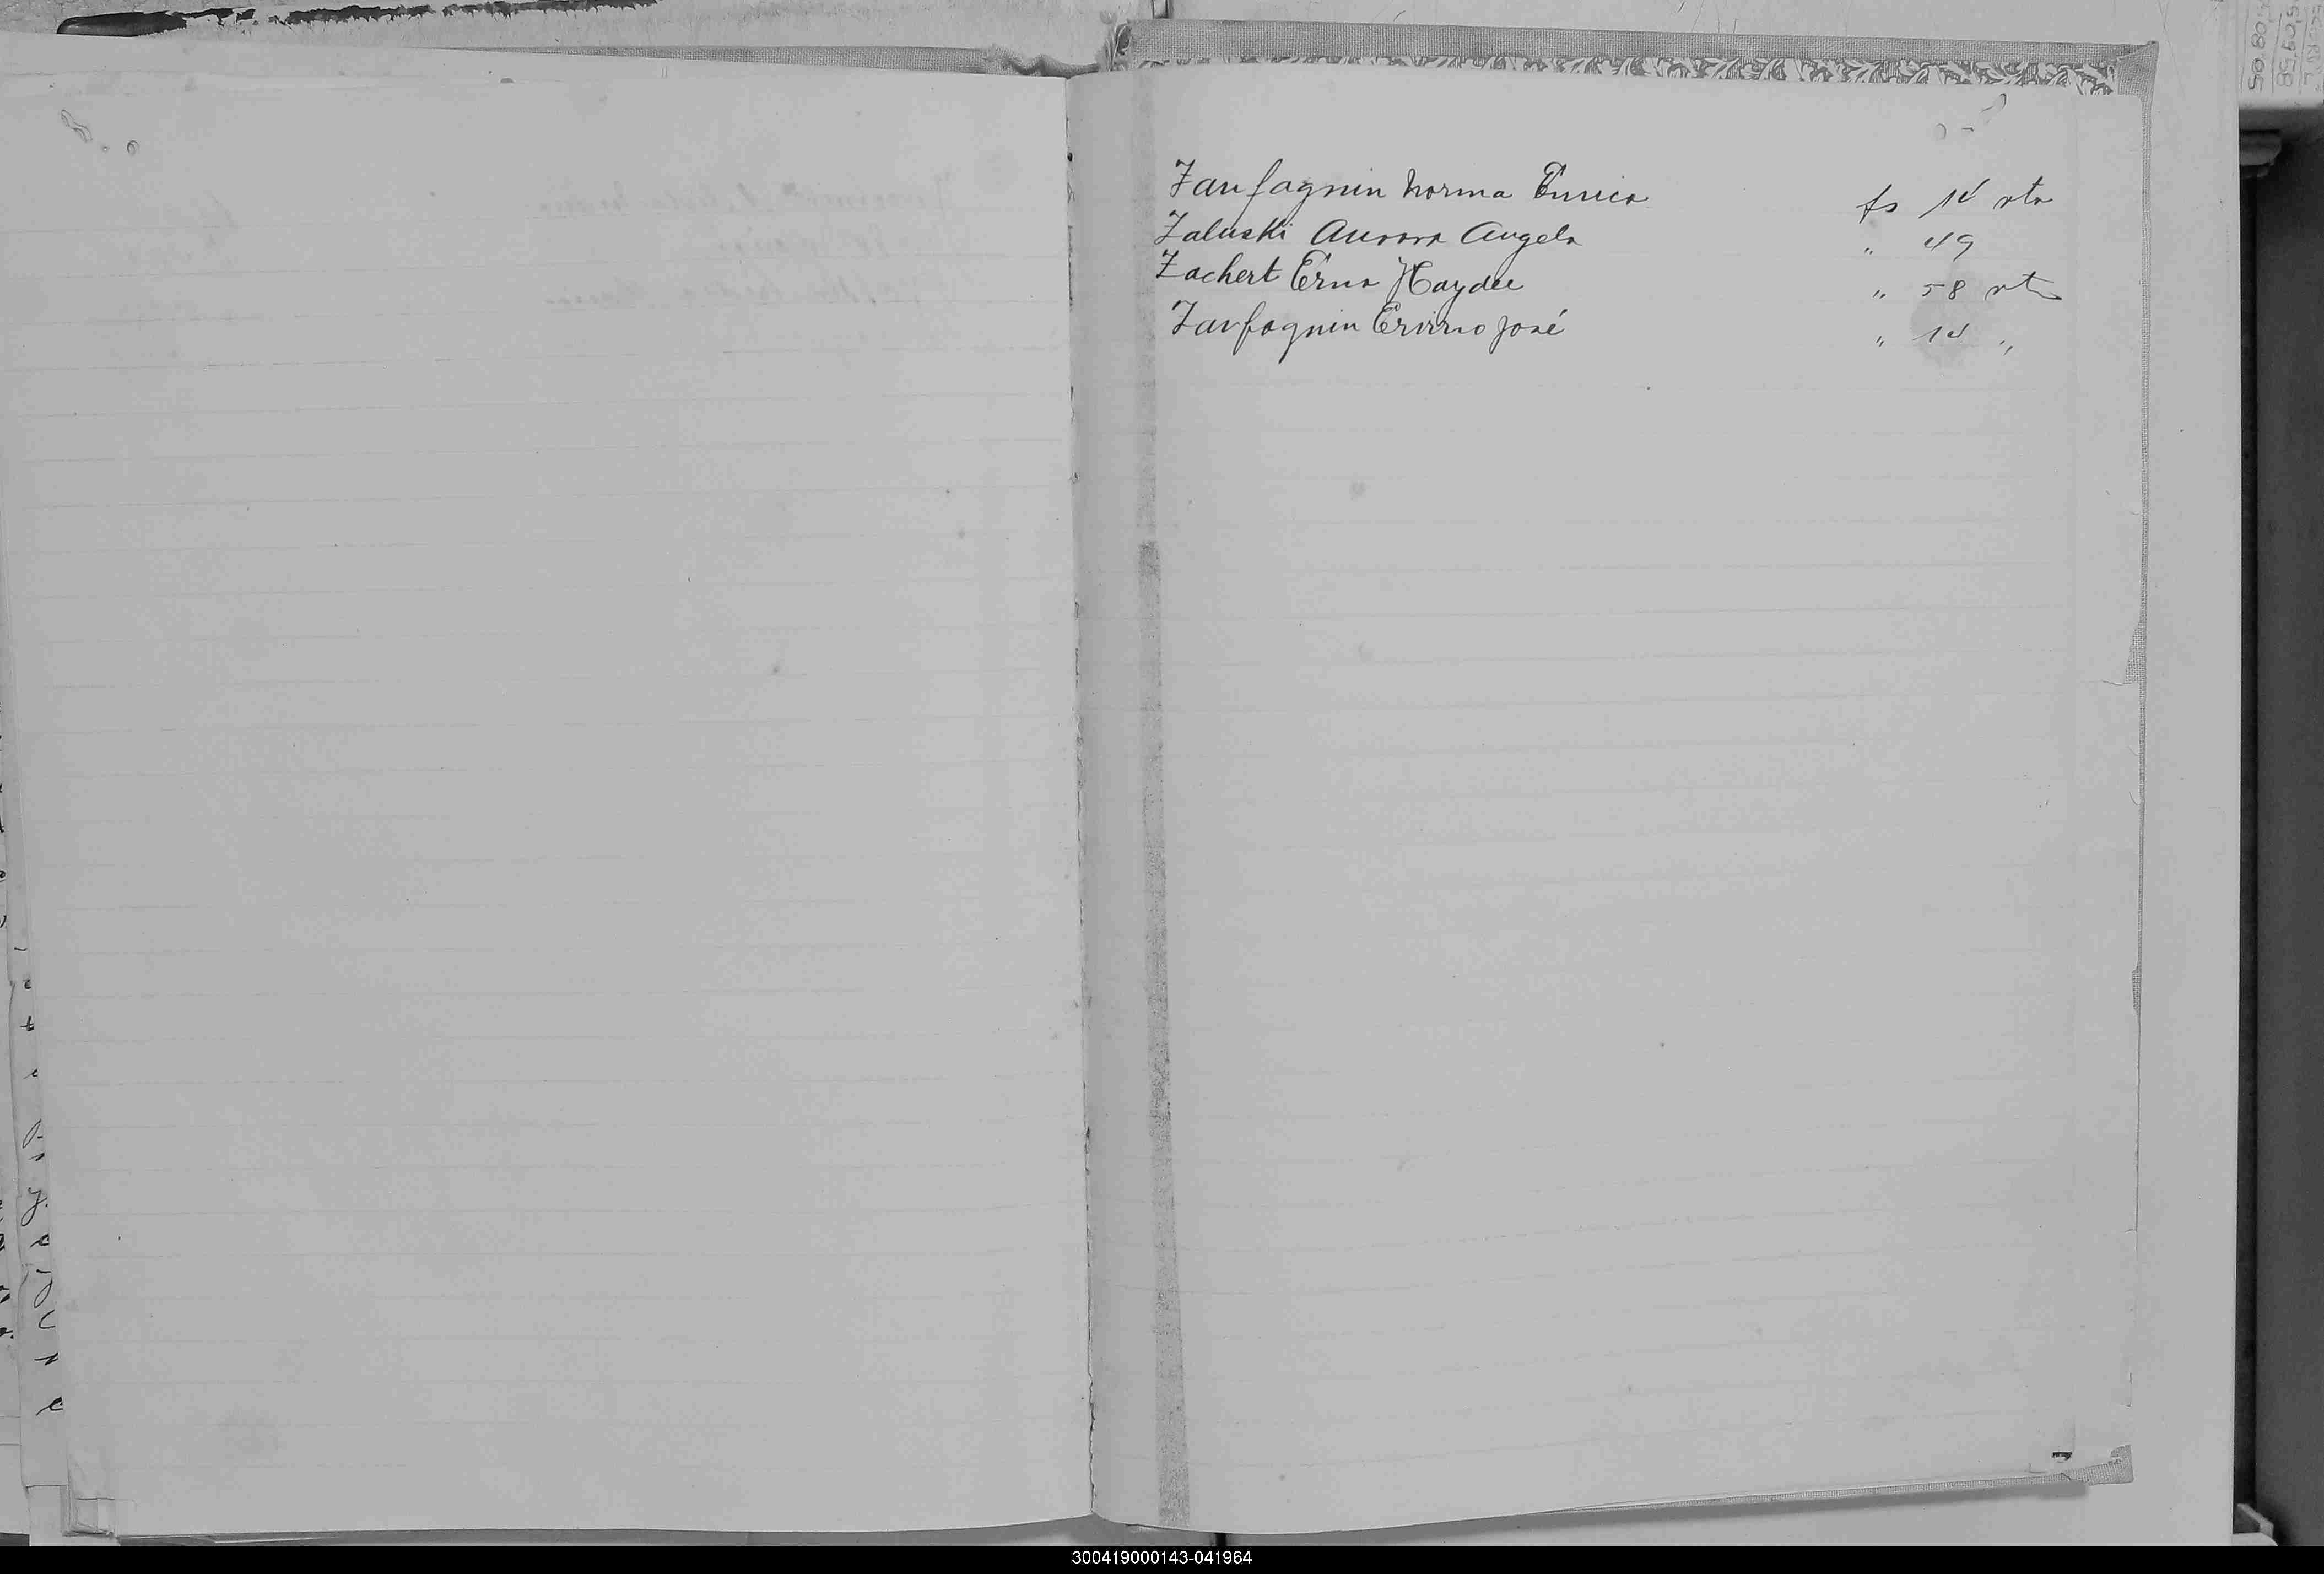 Zanfagnin Norma Enrica fs 14 vta
Zaluski Aurora Angela " 49
Zachert Erna Haydee " 58 vta
Zanfagnin Ervino José " 14 "
300419000143-041964